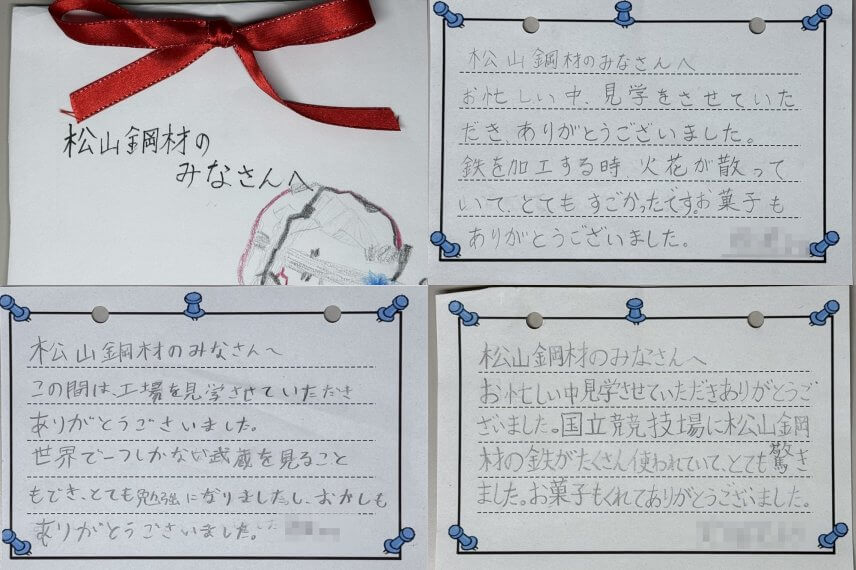 松山鋼材の
みなさんへ
松山鋼材のみなさんへ
お忙しい中、見学をさせていた
だき、ありがとうございました。
鉄を加工する時、火花が散って
いて、とてもすごかったです。お菓子も
ありがとうございました。
松山鋼材のみなさんへ
この間は、工場を見学させていただき
ありがとうございました。
世界で一つしかない武蔵を見ること
もでき、とても勉強になりましたし、おかしも
ありがとうございました。
松山鋼材のみなさんへ
お忙しい中見学させていただきありがとうご
ざいました。国立競技場に松山鋼
材の鉄がたくさん使われていて、とても驚き
ました。お菓子もくれてありがとうございました。